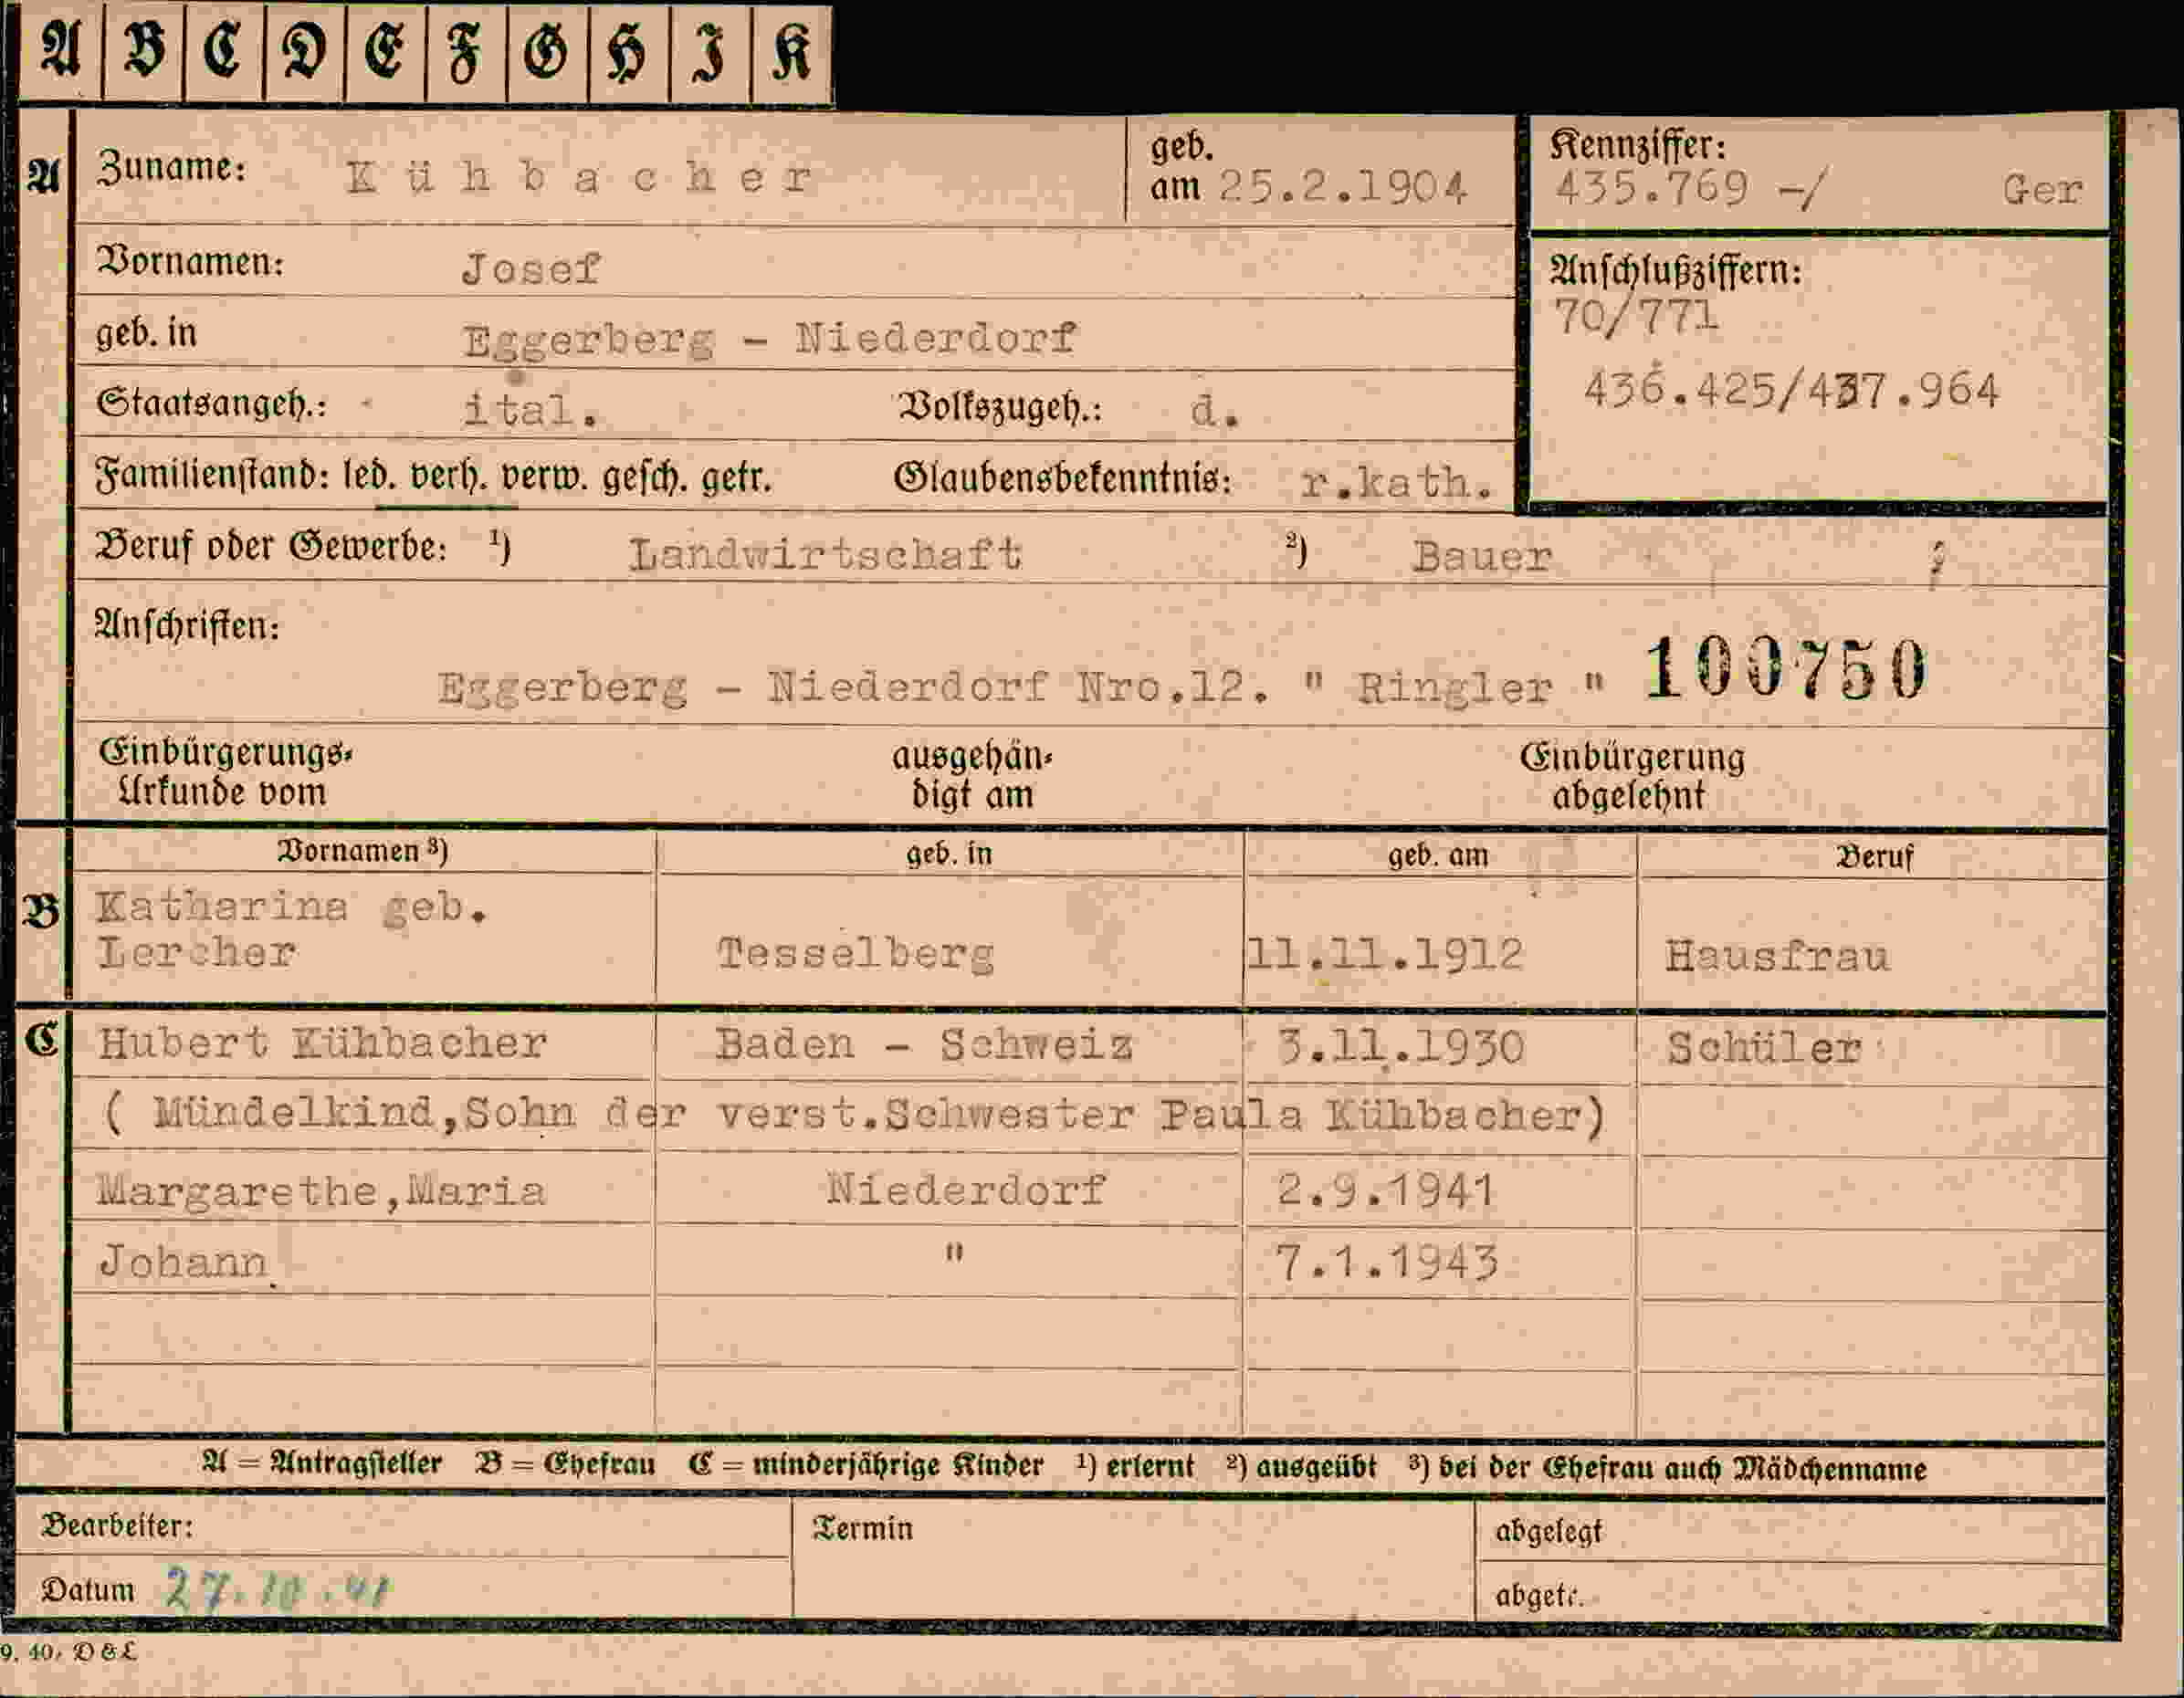 A B C D E F G H I K
A Zuname: Kühbacher geb. am 25.2.1904 Kennziffer: 435.769 -/ Ger
Vornamen: Josef
Anschlußziffern:
70/771
geb. in Eggerberg - Niederdorf
436.425/437.964
Staatsangeh.: ital. Volkszugeh.: d.
Familienstand: led. verh. verw. gesch. getr. Glaubensbekenntnis: r.kath.
Beruf oder Gewerbe: ¹) Landwirtschaft ²) Bauer ;
Anschriften:
Eggerberg - Niederdorf Nro.12. " Ringler " 100750
Einbürgerungs- ausgehän- Einbürgerung
Urkunde vom digt am abgelehnt
Vornamen ³) geb. in geb. am Beruf
B Katharina geb.
Lercher Tesselberg 11.11.1912 Hausfrau
C Hubert Kühbacher Baden - Schweiz 3.11.1930 Schüler
( Mündelkind,Sohn der verst.Schwester Paula Kühbacher)
Margarethe,Maria Niederdorf 2.9.1941
Johann " 7.1.1943
A = Antragsteller B = Ehefrau C = minderjährige Kinder ¹) erlernt ²) ausgeübt ³) bei der Ehefrau auch Mädchenname
Bearbeiter: Termin abgelegt
Datum 27.10.41 abgetr.
9. 40. D & L